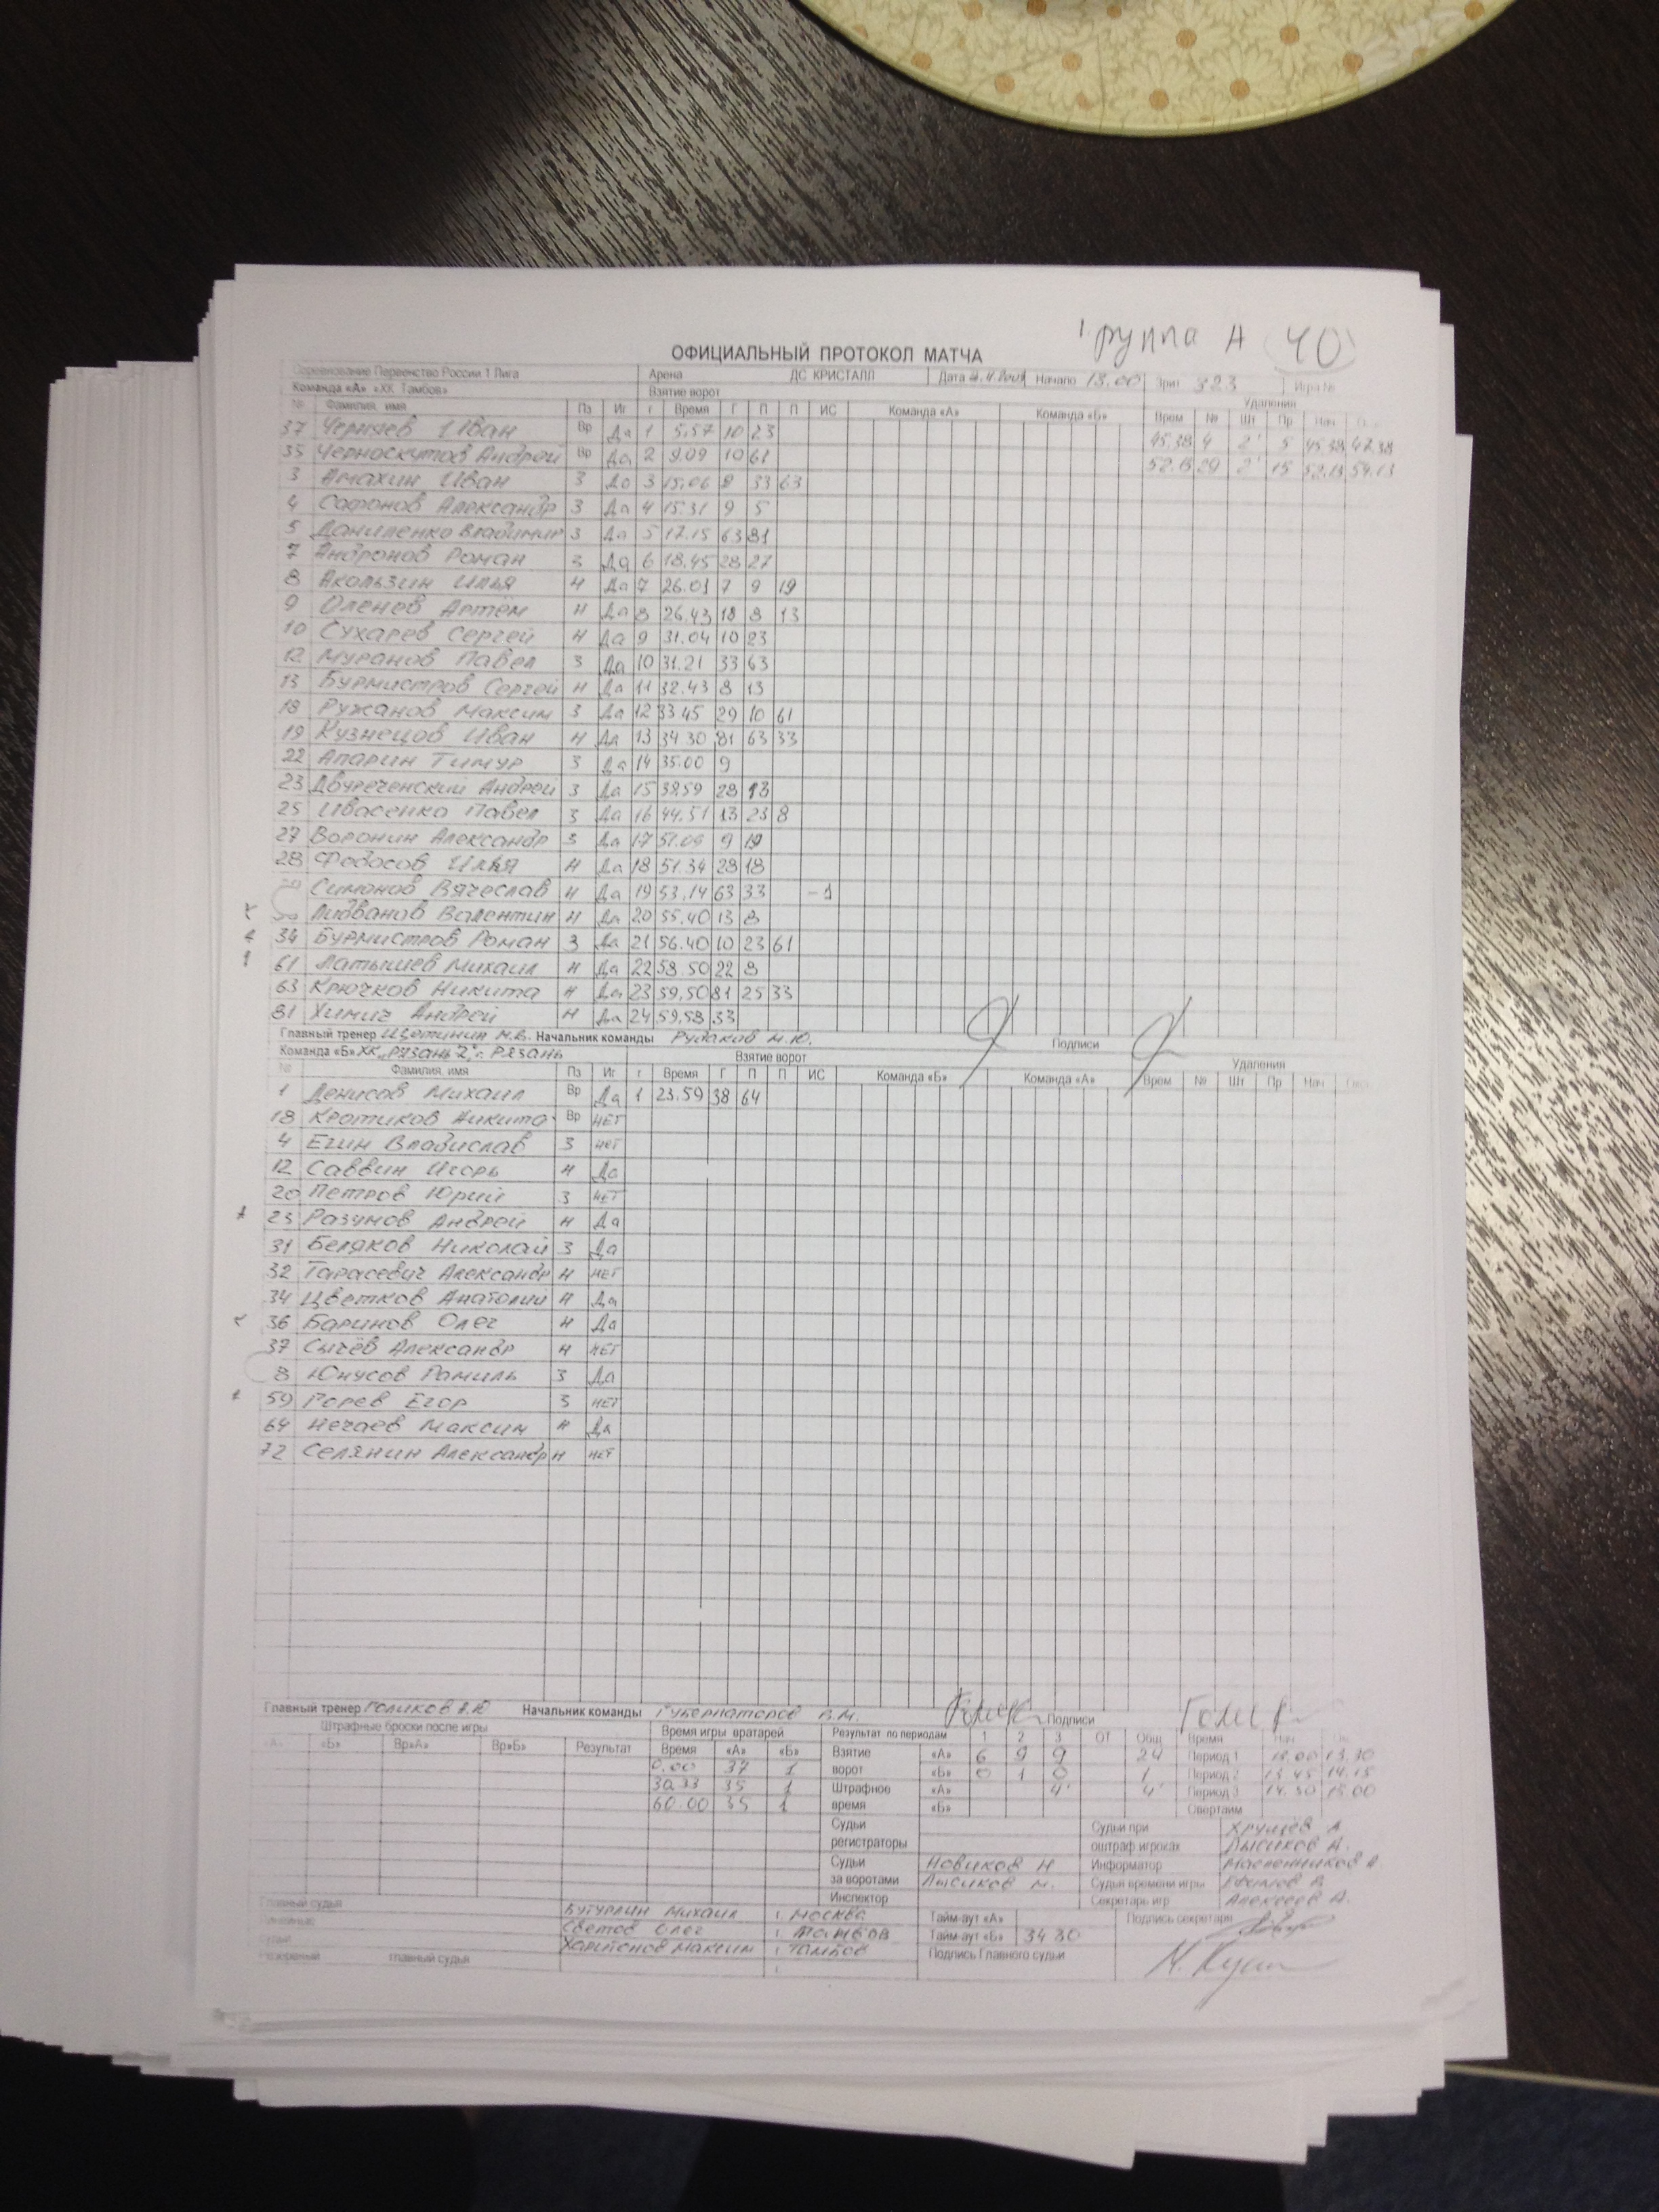 Группа А 40
ОФИЦИАЛЬНЫЙ ПРОТОКОЛ МАТЧА
Соревнование Первенство России 1 Лига Арена ДС КРИСТАЛЛ Дата Начало 13.00 Зрит 323 Игра №
Команда «А» «ХК Тамбов» Взятие ворот Удаления
№ Фамилия, имя Пз Иг г Время Г П П ИС Команда «А» Команда «Б» Врем № Шт Пр Нач
37 Черняев Иван Вр Да 1 5.57 10 23 45.38 4 2' 5 45.38 47.38
35 Черноскутов Андрей Вр Да 2 9.09 10 61 52.13 29 2' 15 52.13 54.13
3 Амахин Иван З Да 3 15.06 8 33 63
4 Сафонов Александр З Да 4 15.31 9 5
5 Даниленко Владимир З Да 5 17.15 63 81
7 Андронов Роман З Да 6 18.45 28 27
8 Акользин Илья Н Да 7 26.01 7 9 19
9 Оленев Артём Н Да 8 26.43 18 8 13
10 Сухарев Сергей Н Да 9 31.04 10 23
12 Муранов Павел З Да 10 31.21 33 63
13 Бурмистров Сергей Н Да 11 32.43 8 13
18 Ружанов Максим З Да 12 33 45 29 10 61
19 Кузнецов Иван Н Да 13 34 30 81 63 33
22 Апарин Тимур З Да 14 35.00 9
23 Двуреченский Андрей З Да 15 38.59 28 13
25 Ивасенко Павел З Да 16 44.51 13 23 8
27 Воронин Александр З Да 17 51.09 9 19
28 Федосов Илья Н Да 18 51.34 28 18
Симонов Вячеслав Н Да 19 53.14 63 33 -1
Лидванов Валентин Н Да 20 55.40 13 8
34 Бурмистров Роман З Да 21 56.40 10 23 61
61 Латышев Михаил Н Да 22 58.50 22 8
63 Крючков Никита Н Да 23 59.50 81 25 33
81 Химич Андрей Н Да 24 59.58 33
Главный тренер Щетинин М.В. Начальник команды Рудаков М.Ю. Подписи
Команда «Б» ХК "Рязань 2", г. Рязань Взятие ворот Удаления
№ Фамилия, имя Пз Иг г Время Г П П ИС Команда «Б» Команда «А» Врем № Шт Пр Нач
1 Денисов Михаил Вр Да 1 23.59 38 64
18 Кротиков Никита Вр НЕТ
4 Егин Владислав З НЕТ
12 Саввин Игорь Н Да
20 Петров Юрий З НЕТ
23 Разумов Андрей Н Да
31 Беляков Николай З Да
32 Тарасевич Александр Н НЕТ
34 Цветков Анатолий Н Да
36 Баринов Олег Н Да
37 Сычёв Александр Н НЕТ
8 Юнусов Рамиль З Да
59 Горев Егор З НЕТ
64 Нечаев Максим Н Да
72 Селянин Александр Н НЕТ
Главный тренер Голиков Начальник команды Губернаторов В.М. Подписи
Штрафные броски после игры Время игры вратарей Результат по периодам 1 2 3 ОТ Общ Время Нач
«А» «Б» Вр»А» Вр»Б» Результат Время «А» «Б» Взятие «А» 6 9 9 24 Период 1 13.00 13.30
0.00 37 1 ворот «Б» 0 1 0 1 Период 2 13 45 14.15
30.33 35 1 Штрафное «А» 4' 4' Период 3 14.30 15.00
60.00 35 1 время «Б» Овертайм
Судьи регистраторы Судьи при оштраф игроках Хрущев А. Лысиков А.
Судьи за воротами Новиков Н Лысиков М. Информатор Масленников А.
Судья времени игры Ефимов В.
Инспектор Секретарь игр Алексеев А.
Главный судья Бутурлин Михаил г. Москва Тайм-аут «А» Подпись секретаря
Линейные Светов Олег г. Тамбов Тайм-аут «Б» 34 30
судьи Харитонов Максим г. Тамбов Подпись Главного судьи
Резервный главный судья г.